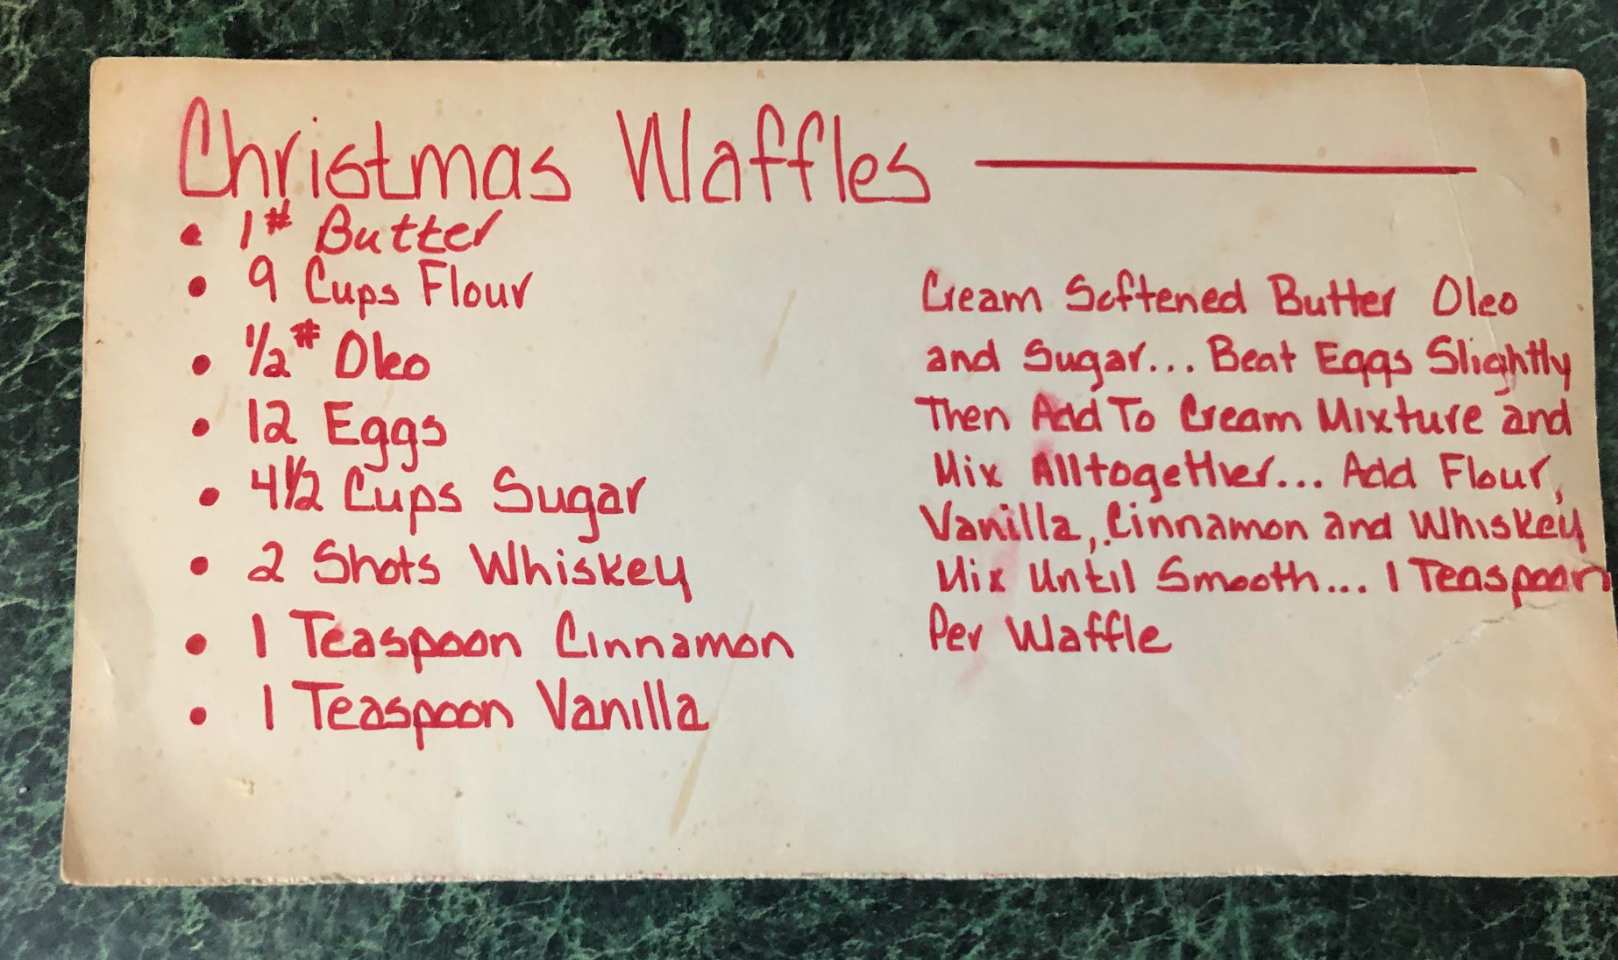 Christmas Waffles
• 1# Butter
• 9 Cups Flour
• 1/2# Oleo
• 12 Eggs
• 4 1/2 Cups Sugar
• 2 Shots Whiskey
• 1 Teaspoon Cinnamon
• 1 Teaspoon Vanilla
Cream Softened Butter Oleo
and Sugar... Beat Eggs Slightly
Then Add To Cream Mixture and
Mix Alltogether... Add Flour,
Vanilla, Cinnamon and Whiskey
Mix Until Smooth... 1 Teaspoon
Per Waffle